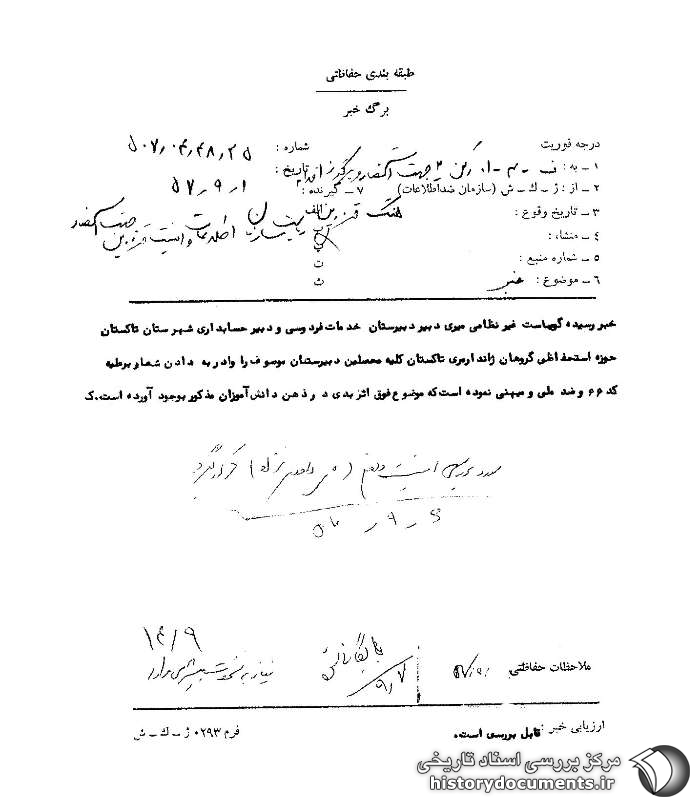 طبقه بندی حفاظتی
برگ خبر
درجه فوریت
شماره : ۵۰۷،۰۴،۴۸،۲۵
۱ ـ به :
جهت استحضار و برگیرز
تاریخ : ۵۷،۹،۱
۲ ـ از : ژ ـ ك ـ ش (سازمان ضداطلاعات)
۷ ـ گیرنده :
۳ ـ تاریخ وقوع :
الف
هنگ قزوین
۴ ـ منشاء :
ب
ریاست سازمان اطلاعات و امنیت قزوین جهت استحضار
۵ ـ شماره منبع :
ت
۶ ـ موضوع : خبر
ث
خبر رسیده گویاست غیر نظامی میری دبیر دبیرستان خدمات فردوسی و دبیر حسابداری شهرستان تاکستان
حوزه استحفاظی گروهان ژاندارمری تاکستان کلیه محصلین دبیرستان موصوف را وادار به دادن شعار برعلیه
کد ۶۶ و ضد ملی و میهنی نموده است که موضوع فوق اثر بدی در ذهن دانش آموزان مذکور بوجود آورده است.ک
۱۴/۹
بایگانی
۹/۷
ملاحظات حفاظتی
ارزیابی خبر : قابل بررسی است.
فرم ۰۲۹۳ ژ ـ ك ـ ش
مرکز بررسی اسناد تاریخی
historydocuments.ir